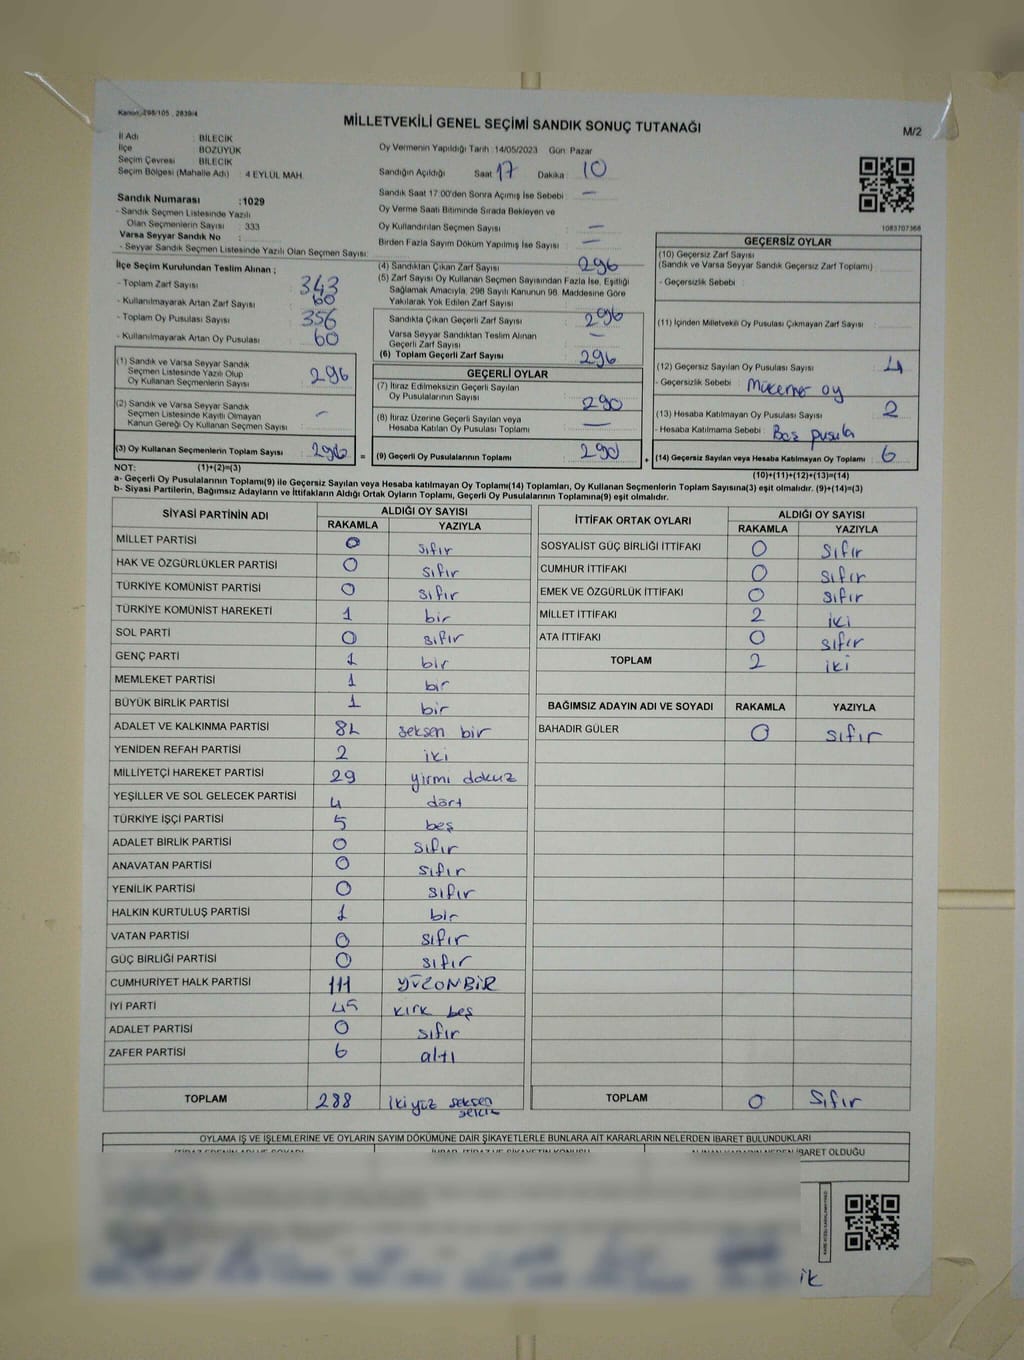 Kanun : 298/105 , 2839/4
MİLLETVEKİLİ GENEL SEÇİMİ SANDIK SONUÇ TUTANAĞI
M/2
İl Adı : BİLECİK
İlçe BOZÜYÜK
Seçim Çevresi : BİLECİK
Seçim Bölgesi (Mahalle Adı) : 4 EYLÜL MAH.
Sandık Numarası :1029
- Sandık Seçmen Listesinde Yazılı
Olan Seçmenlerin Sayısı : 333
Varsa Seyyar Sandık No :
- Seyyar Sandık Seçmen Listesinde Yazılı Olan Seçmen Sayısı:
Oy Vermenin Yapıldığı Tarih :14/05/2023 Gün Pazar
Sandığın Açıldığı Saat 17 Dakika 10
Sandık Saat 17.00'den Sonra Açımış İse Sebebi : —
Oy Verme Saati Bitiminde Sırada Bekleyen ve
Oy Kullandırılan Seçmen Sayısı : —
Birden Fazla Sayım Döküm Yapılmış İse Sayısı : —
1083707368
İlçe Seçim Kurulundan Teslim Alınan ;
- Toplam Zarf Sayısı : 343
- Kullanılmayarak Artan Zarf Sayısı : 60
- Toplam Oy Pusulası Sayısı : 356
- Kullanılmayarak Artan Oy Pusulası : 60
(1) Sandık ve Varsa Seyyar Sandık
Seçmen Listesinde Yazılı Olup
Oy Kullanan Seçmenlerin Sayısı : 296
(2) Sandık ve Varsa Seyyar Sandık
Seçmen Listesinde Kayıtlı Olmayan
Kanun Gereği Oy Kullanan Seçmen Sayısı : —
(3) Oy Kullanan Seçmenlerin Toplam Sayısı : 296 =
(4) Sandıktan Çıkan Zarf Sayısı : 296
(5) Zarf Sayısı Oy Kullanan Seçmen Sayısından Fazla İse, Eşitliği
Sağlamak Amacıyla, 298 Sayılı Kanunun 98. Maddesine Göre
Yakılarak Yok Edilen Zarf Sayısı :
Sandıkta Çıkan Geçerli Zarf Sayısı : 296
Varsa Seyyar Sandıktan Teslim Alınan
Geçerli Zarf Sayısı : —
(6) Toplam Geçerli Zarf Sayısı : 296
GEÇERLİ OYLAR
(7) İtiraz Edilmeksizin Geçerli Sayılan
Oy Pusulalarının Sayısı : 290
(8) İtiraz Üzerine Geçerli Sayılan veya
Hesaba Katılan Oy Pusulası Toplamı : —
(9) Geçerli Oy Pusulalarının Toplamı : 290 +
GEÇERSİZ OYLAR
(10) Geçersiz Zarf Sayısı
(Sandık ve Varsa Seyyar Sandık Geçersiz Zarf Toplamı) :
- Geçersizlik Sebebi :
(11) İçinden Milletvekili Oy Pusulası Çıkmayan Zarf Sayısı :
(12) Geçersiz Sayılan Oy Pusulası Sayısı : 4
- Geçersizlik Sebebi : Mükerrer oy
(13) Hesaba Katılmayan Oy Pusulası Sayısı : 2
- Hesaba Katılmama Sebebi : Boş pusula
(14) Geçersiz Sayılan veya Hesaba Katılmayan Oy Toplamı : 6
NOT: (1)+(2)=(3)
(10)+(11)+(12)+(13)=(14)
a- Geçerli Oy Pusulasının Toplamı(9) ile Geçersiz Sayılan veya Hesaba Katılmayan Oy Toplamı(14) Toplamları, Oy Kullanan Seçmenlerin Toplam Sayısına(3) eşit olmalıdır. (9)+(14)=(3)
b- Siyasi Partilerin, Bağımsız Adayların ve İttifakların Aldığı Ortak Oyların Toplamı, Geçerli Oy Pusulalarının Toplamına(9) eşit olmalıdır.
SİYASİ PARTİNİN ADI ALDIĞI OY SAYISI
RAKAMLA YAZIYLA
MİLLET PARTİSİ 0 sıfır
HAK VE ÖZGÜRLÜKLER PARTİSİ 0 sıfır
TÜRKİYE KOMÜNİST PARTİSİ 0 sıfır
TÜRKİYE KOMÜNİST HAREKETİ 1 bir
SOL PARTİ 0 sıfır
GENÇ PARTİ 1 bir
MEMLEKET PARTİSİ 1 bir
BÜYÜK BİRLİK PARTİSİ 1 bir
ADALET VE KALKINMA PARTİSİ 81 seksen bir
YENİDEN REFAH PARTİSİ 2 iki
MİLLİYETÇİ HAREKET PARTİSİ 29 yirmi dokuz
YEŞİLLER VE SOL GELECEK PARTİSİ 4 dört
TÜRKİYE İŞÇİ PARTİSİ 5 beş
ADALET BİRLİK PARTİSİ 0 sıfır
ANAVATAN PARTİSİ 0 sıfır
YENİLİK PARTİSİ 0 sıfır
HALKIN KURTULUŞ PARTİSİ 1 bir
VATAN PARTİSİ 0 sıfır
GÜÇ BİRLİĞİ PARTİSİ 0 sıfır
CUMHURİYET HALK PARTİSİ 111 YÜZONBİR
İYİ PARTİ 45 kırk beş
ADALET PARTİSİ 0 sıfır
ZAFER PARTİSİ 6 altı
TOPLAM 288 ikiyüz seksen sekiz
İTTİFAK ORTAK OYLARI ALDIĞI OY SAYISI
RAKAMLA YAZIYLA
SOSYALİST GÜÇ BİRLİĞİ İTTİFAKI 0 sıfır
CUMHUR İTTİFAKI 0 sıfır
EMEK VE ÖZGÜRLÜK İTTİFAKI 0 sıfır
MİLLET İTTİFAKI 2 iki
ATA İTTİFAKI 0 sıfır
TOPLAM 2 iki
BAĞIMSIZ ADAYIN ADI VE SOYADI RAKAMLA YAZIYLA
BAHADIR GÜLER 0 sıfır
TOPLAM 0 sıfır
OYLAMA İŞ VE İŞLEMLERİNE VE OYLARIN SAYIM DÖKÜMÜNE DAİR ŞİKAYETLERLE BUNLARA AİT KARARLARIN NELERDEN İBARET BULUNDUKLARI
İBARET OLDUĞU